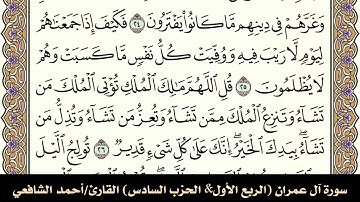 وَغَرَّهُمْ فِى دِينِهِم مَّا كَانُوا۟ يَفْتَرُونَ ٢٤ فَكَيْفَ إِذَا جَمَعْنَٰهُمْ
لِيَوْمٍ لَّا رَيْبَ فِيهِ وَوُفِّيَتْ كُلُّ نَفْسٍ مَّا كَسَبَتْ وَهُمْ
لَا يُظْلَمُونَ ٢٥ قُلِ ٱللَّهُمَّ مَٰلِكَ ٱلْمُلْكِ تُؤْتِى ٱلْمُلْكَ مَن
تَشَآءُ وَتَنزِعُ ٱلْمُلْكَ مِمَّن تَشَآءُ وَتُعِزُّ مَن تَشَآءُ وَتُذِلُّ مَن
تَشَآءُ ۖ بِيَدِكَ ٱلْخَيْرُ ۖ إِنَّكَ عَلَىٰ كُلِّ شَىْءٍ قَدِيرٌ ٢٦ تُولِجُ ٱلَّيْلَ
سورة آل عمران (الربع الأول& الحزب السادس) القارئ/أحمد الشافعي